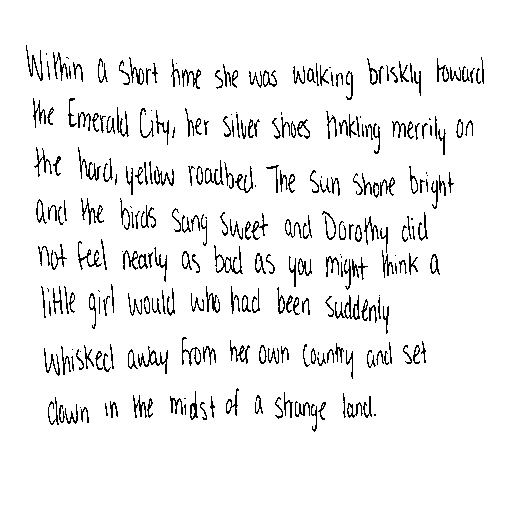 Within a short time she was walking briskly toward
the Emerald City, her silver shoes tinkling merrily on
the hard, yellow roadbed. The sun shone bright
and the birds sang sweet and Dorothy did
not feel nearly as bad as you might think a
little girl would who had been suddenly
whisked away from her own country and set
down in the midst of a strange land.